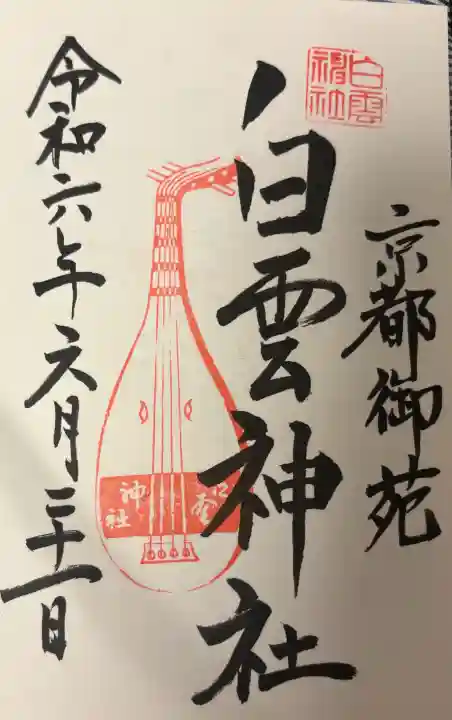 京都御苑
白雲神社
白雲神社
神社
令和六年六月二十一日